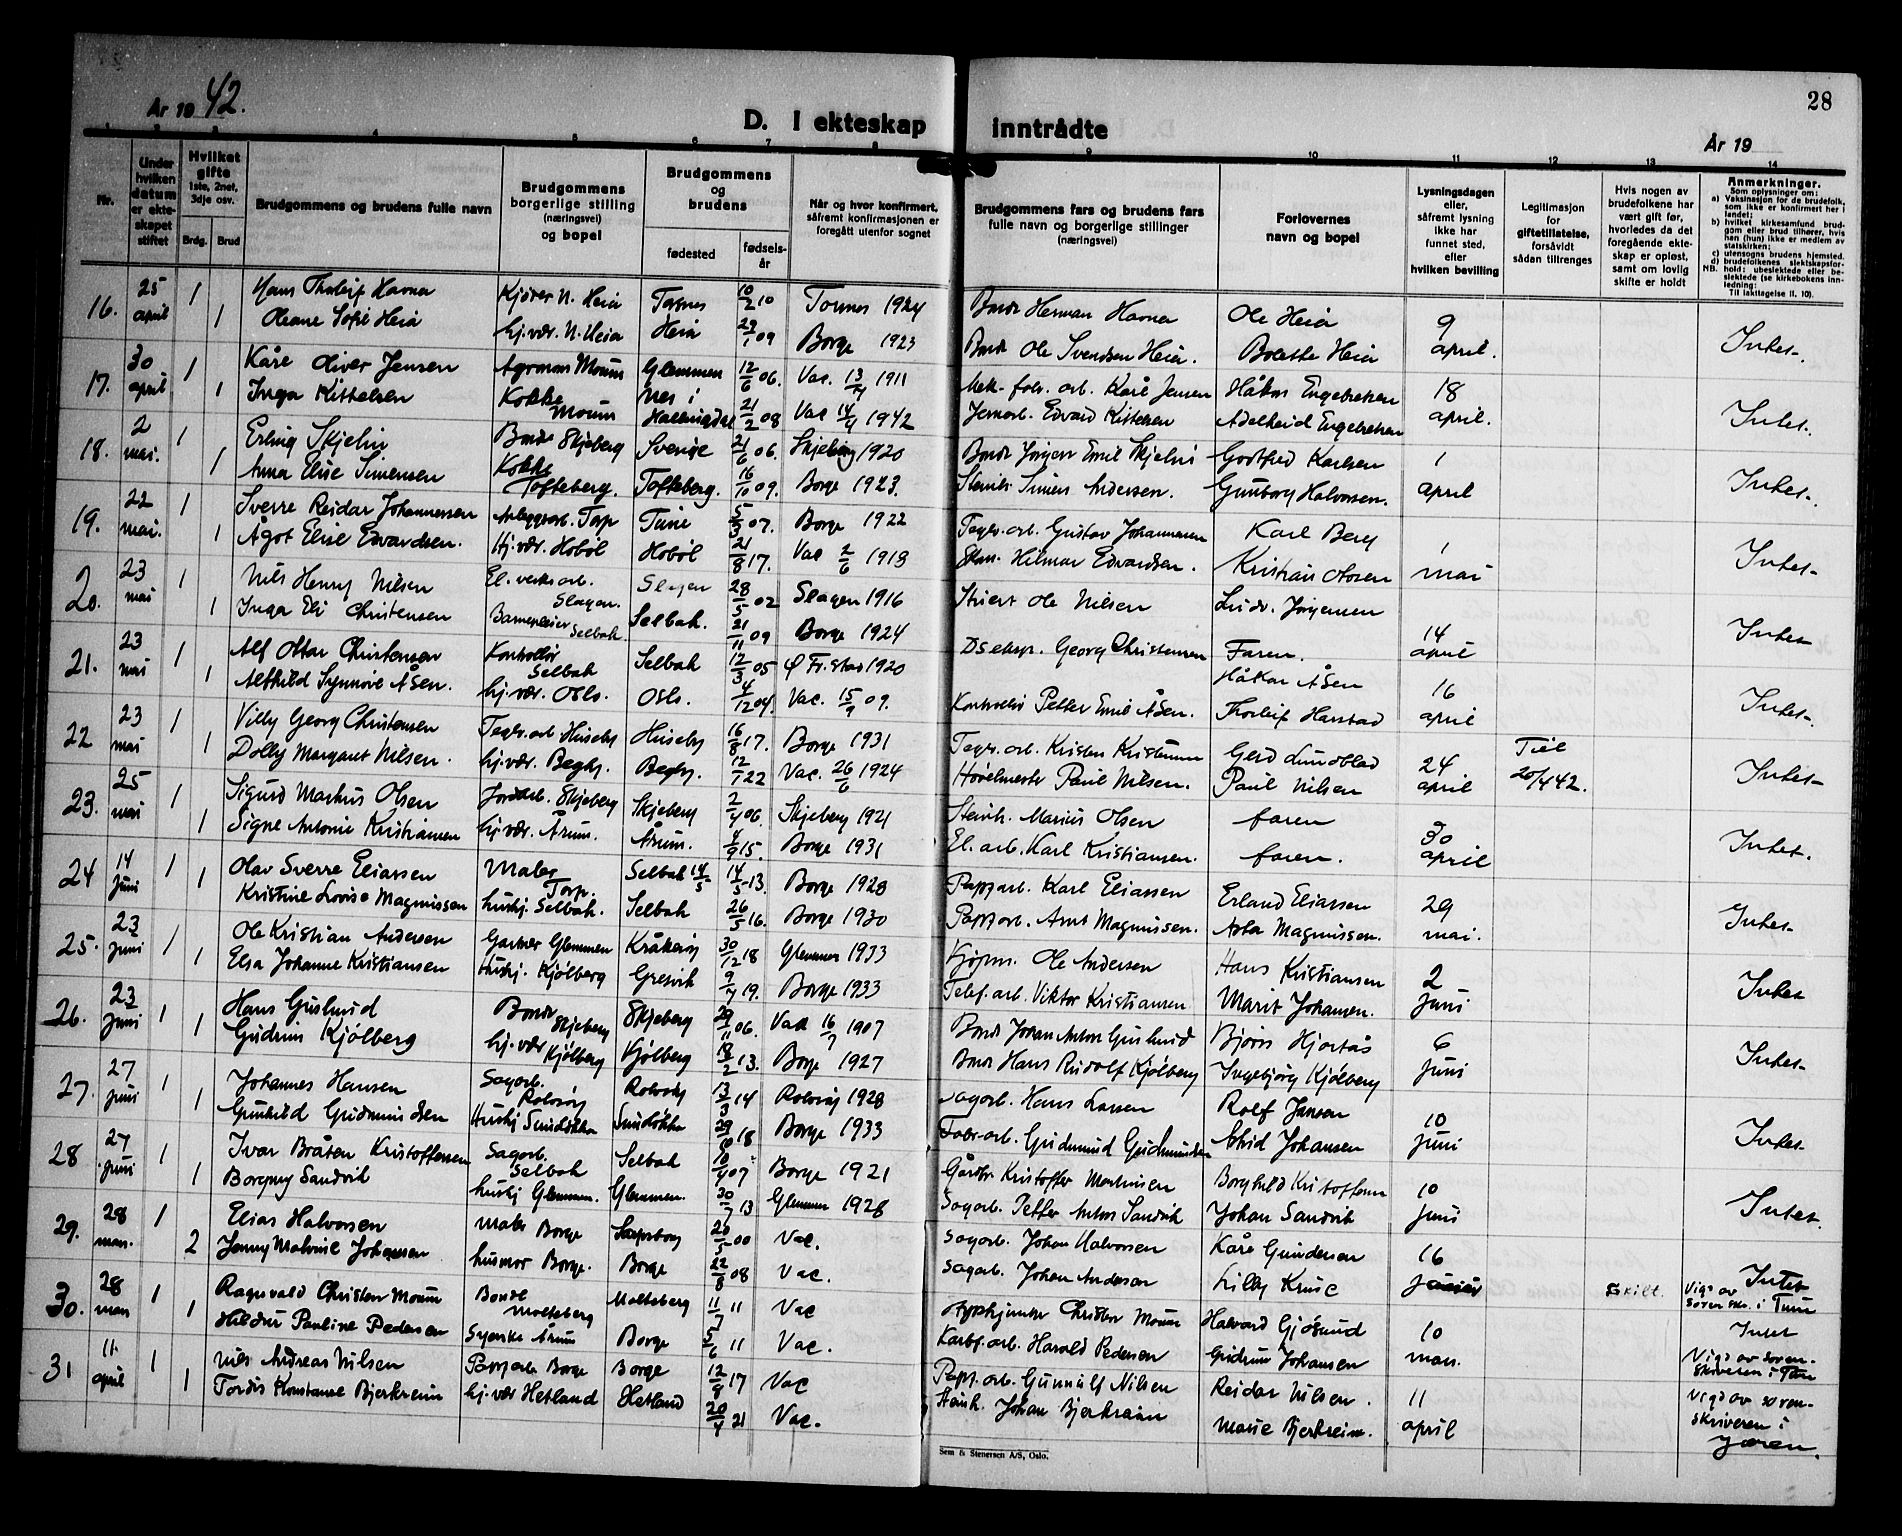 28
År 1942.
D. I ekteskap inntrådte
År 19
1 2 3 4 5 6 7 8 9 10 11 12 13 14
Nr.
Under hvilken datum er ekteskapet stiftet
Hvilket gifte 1ste, 2net, 3dje osv.
Brdg. Brud
Brudgommens og brudens fulle navn
Brudgommens borgerlige stilling (næringsvei) og bopel
Brudgommens og brudens
fødested
fødselsår
Når og hvor konfirmert, såfremt konfirmasjonen er foregått utenfor sognet
Brudgommens fars og brudens fars fulle navn og borgerlige stillinger (næringsvei)
Forlovernes navn og bopel
Lysningsdagen eller, såfremt lysning ikke har funnet sted, efter hvilken bevilling
Legitimasjon for giftetillatelse, forsåvidt sådan tiltrenges
Hvis nogen av brudefolkene har vært gift før, hvorledes da det foregående ekteskap er opløst, samt om lovlig skifte er holdt
Anmerkninger.
Som oplysninger om:
a) Vaksinasjon for de brudefolk, som ikke er konfirmert her i landet;
b) hvilket kirkesamfund brudgom eller brud tilhører, hvis han (hun) ikke er medlem av statskirken;
c) utensogns brudens hjemsted.
d) brudefolkenes slektskapsforhold: ubeslektede eller beslektede (se kirkebokens innledning:
NB.
Til iakttagelse II, 10).
16. 25 april 1 Hans Tholeif Havna Kjører N. Heia Torsnes 10/2 10 Torsnes 1924 Bonde Herman Havna Ole Heia 9 april. Intet.
1 Oleane Sofie Heia hj.vær. N. Heia Heia 23/1 09 Borge 1923 Bonde Ole Svendsen Heia. Bolette Heia
17. 30 april 1 Kåre Oliver Jensen Agronom Moum Glemmen 12/6 06. Vac. 13/7 1911 Mek. fabr. arb. Karl Jensen Håkon Engebretsen 18 april. Intet.
1 Inga Kittelsen Kokke Moum Nes i Hallingdal 21/2 08 Vac 14/4 1942 Jernarb. Edvard Kittelsen Adelheid Engebretsen
18. 2 mai. 1 Erling Skjelin Bonde Skjeberg Sverige 21/6 06. Skjeberg 1920 Bonde Jørgen Emil Skjelin Godtfred Karlsen 1 april Intet.
1 Anna Elise Simensen Kokke Tofteberg. Tofteberg. 16/10 09. Borge 1923. Steinh. Simen Andersen. Gunborg Halvorsen.
19. 22 mai. 1 Sverre Reidar Johannessen Anleggsarb. Torp Tune 5/3 07. Borge 1922 Tegls. arb. Gustav Johannessen Karl Berg 1 mai Intet.
1 Ågot Elise Edvardsen. Hj.vær. Hobøl Hobøl 21/8 17. Vac 2/6 1918 Skm. Hilmar Edvardsen. Kristian Olsen
20. 23 mai 1 Nils Henry Nilsen El. verksarb. Slagen. Slagen 28/5 02 Slagen 1916 Stuert Ole Nilsen Ludv. Jørgensen 14 april Intet
1 Inga Eli Christensen Barnepleier Selbak Selbak. 21/11 09 Borge 1924 Dsekspr. Georg Christensen Faren.
21. 23 mai 1 Alf Ottar Christensen Kontrollør Selbak Selbak 12/3 05 Ø Fr.stad 1920 Håkon Åsen 16 april Intet.
1 Alfhild Synnøve Åsen. hj.vær. Oslo. Oslo. 4/12 04. Vac. 15/9 09. Kontrollør Petter Emil Åsen. Thorleif Harstad
22 23 mai 1 Villy Georg Christensen Tegls.arb. Huseby Huseby 16/8 17. Borge 1931 Tegls. arb. Kristen Kristensen Gerd Lundblad 24 april 20/4 42. Intet
1 Dolly Margaret Nilsen. hj.vær. Begby. Begby. 12/1 22 Vac. 26/6 1924 Høvelmester Paul Nilsen. Paul Nilsen
23. 25 mai 1 Sigurd Markus Olsen Jordarb. Skjeberg Skjeberg 2/4 06. Skjeberg 1921 Steinh. Marius Olsen faren 30 april Intet.
1 Signe Antonie Kristiansen hj.vær. Årum. Årum. 4/9 15. Borge 1931 El. arb. Karl Kristiansen. faren.
24 14 juni 1 Olav Sverre Eliassen Maler Torp. Selbak 14/5 14/5 13 Borge 1928 Papp.arb. Karl Eliassen Erland Eliassen 29 mai. Intet
1 Kristine Lovise Magnussen hushj. Selbak. Selbak 26/5 16. Borge 1930 Papp.arb. Arnt Magnussen. Asta Magnussen.
25. 23 juni 1 Ole Kristian Andersen Gartner Glemmen Kråkerøy 30/12 18 Glemmen 1933 Kjøpm. Ole Andersen Hans Kristiansen 2 juni Intet
1 Elsa Johanne Kristiansen Hushj. Kjølberg Gressvik 9/7 19. Borge 1933 Telef. arb. Viktor Kristiansen Marit Johansen.
26. 23 juni 1 Hans Guslund Bonde Skjeberg Skjeberg 29/11 06. Vac 16/7 1907 Bonde Johan Anton Guslund Bjørn Hjortås 6 juni Intet
1 Gudrun Kjølberg hj.vær Kjølberg Kjølberg 18/2 13. Borge 1927 Bonde Hans Rudolf Kjølberg Ingebjørg Kjølberg
27. 27 juni 1 Johannes Hansen Sagarb. Rolvsøy Rolvsøy 13/3 14 Rolvsøy 1928 Sagarb. Hans Larsen Rolf Jansen 10 juni Intet
1 Gunhild Gudmundsen Hushj Sundløkka Sundløkka 29/10 18 Borge 1933 Fabr.arb. Gudmund Gudmundsen Astrid Johansen
28 27 juni 1 Ivar Bråten Kristoffersen Sagarb. Selbak Selbak 10/4 07 Borge 1921 Gårdbr Kristoffer Martinsen Borghild Kristoffersen 10 juni Intet.
1 Borgny Sandvik hushj Glemmen. Glemmen. 30/7 13 Glemmen 1928 Sagarb. Petter Anton Sandvik Johan Sandvik
29. 28 mars. 1 Elias Halvorsen Maler Borge Sarpsborg 20/5 00 Vac. Sagarb. Johan Halvorsen Kåre Gundersen 16 januar Skilt. Intet
2 Jenny Malvine Johansen husmor Borge. Borge 22/8 08 Vac. Sagarb. Johan Andersen Lilly Kruse Vigd av soren skr. i Tune
30. 28 mars 1 Ragnvald Christen Moum Bonde Molteberg Molteberg 11/7 11 Vac Christen Moum Halvard Gjøsund 10 mars. Intet
1 Hildur Pauline Pedersen Syerske Årum Borge 5/6 11 Vac. Karbf.arb. Harald Pedersen Gudrun Johansen Vigd av soren-skriveren i Tune
31 11. april 1 Nils Andreas Nilsen Papp.arb Borge Borge 12/8 17 Vac Papp.arb. Gunnulf Nilsen Reidar Nilsen. 11 april Vigd av soren-skriveren i Jæren.
1 Tordis Konstanse Bjerkreim hj.vær Hetland Hetland 20/4 21 Vac. Steinh. Johan Bjerkreim Marie Bjerkreim.
Sem & Stenersen A/S, Oslo.